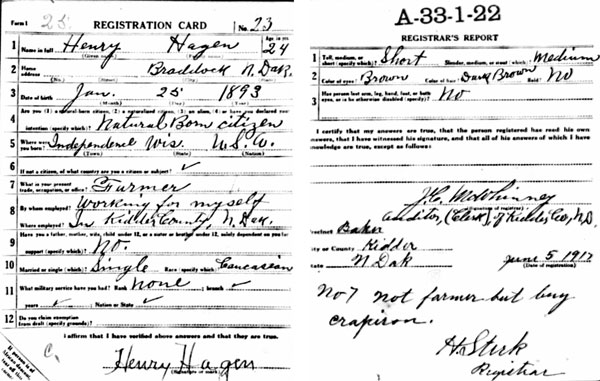 Form 1 25 REGISTRATION CARD No. 23
1 Name in full Henry Hagen Age, in yrs. 24
2 Home address Braddock N. Dak.
3 Date of birth Jan. 25 1893
(Month) (Day) (Year)
Are you (1) a natural-born citizen, (2) a naturalized citizen, (3) an alien, (4) or have you declared your
4 intention (specify which)? Natural Born citizen
5 Where were you born? Independence Wis. U.S.A.
(Town) (State) (Nation)
6 If not a citizen, of what country are you a citizen or subject?
7 What is your present trade, occupation, or office? Farmer
8 By whom employed? Working for myself
Where employed? In Kidder County, N. Dak.
Have you a father, mother, wife, child under 12, or a sister or brother under 12, solely dependent on you for
9 support (specify which)? No.
10 Married or single (which)? Single Race (specify which)? Caucasian
11 What military service have you had? Rank None branch
years Nation or State
12 Do you claim exemption from draft (specify grounds)?
I affirm that I have verified above answers and that they are true.
C. Henry Hagen
If person is of
A-33-1-22
REGISTRAR'S REPORT
1 Tall, medium, or short (specify which)? Short Slender, medium, or stout (which)? Medium
2 Color of eyes? Brown Color of hair? Dark Brown Bald? No
3 Has person lost arm, leg, hand, foot, or both eyes, or is he otherwise disabled (specify)? No
I certify that my answers are true, that the person registered has read his own
answers, that I have witnessed his signature, and that all of his answers of which I have
knowledge are true, except as follows:
(Signature of registrar)
Auditor, (Clerk) of Kidder Co, N.D.
Precinct Baker
City or County Kidder
State N Dak June 5 1917
(Date of registration)
No 7 not farmer but buy
crapiron.
Registrar